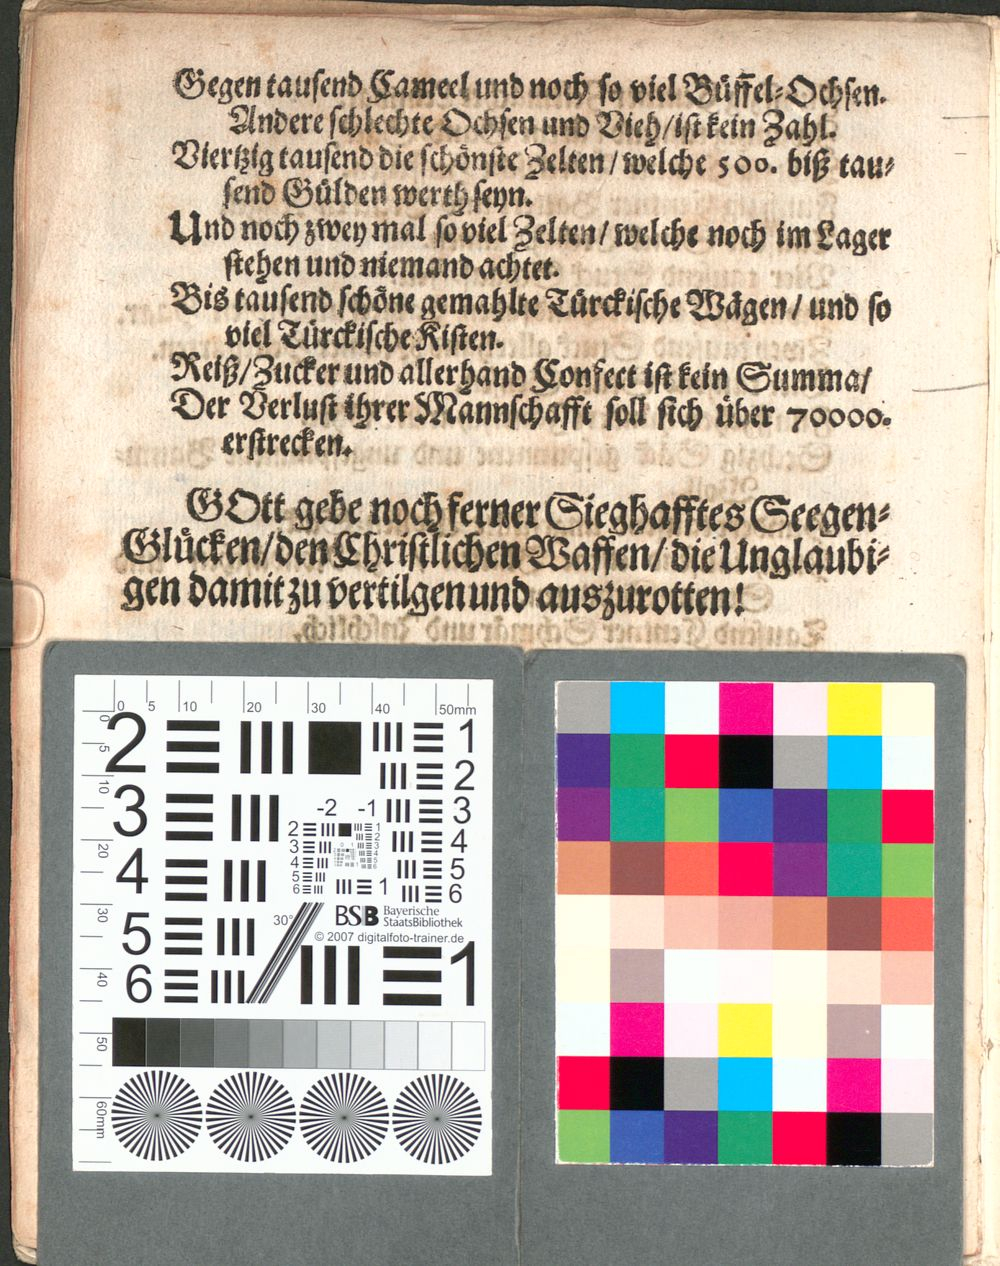 Gegen tausend Cameel und noch so viel Büffel-Ochsen.
Andere schlechte Ochsen und Vieh/ist kein Zahl.
Viertzig tausend die schönste Zelten/welche 500. biß tau-
send Gülden werth seyn.
Und noch zwey mal so viel Zelten/welche noch im Lager
stehen und niemand achtet.
Bis tausend schöne gemahlte Türckische Wägen/und so
viel Türckische Kisten.
Reiß/Zucker und allerhand Confect ist kein Summa/
Der Verlust ihrer Mannschafft soll sich über 70000.
erstrecken.
GOtt gebe noch ferner Sieghafftes Seegen-
Glücken/den Christlichen Waffen/die Unglaubi-
gen damit zu vertilgen und auszurotten!
0 5 10 20 30 40 50mm
0 5 10 20 30 40 50 60mm
2 1
2
3 3
4 4
5 5
6 6
-2 -1
2 1
3
4
5
6 1
30°
BSB Bayerische
StaatsBibliothek
© 2007 digitalfoto-trainer.de
1